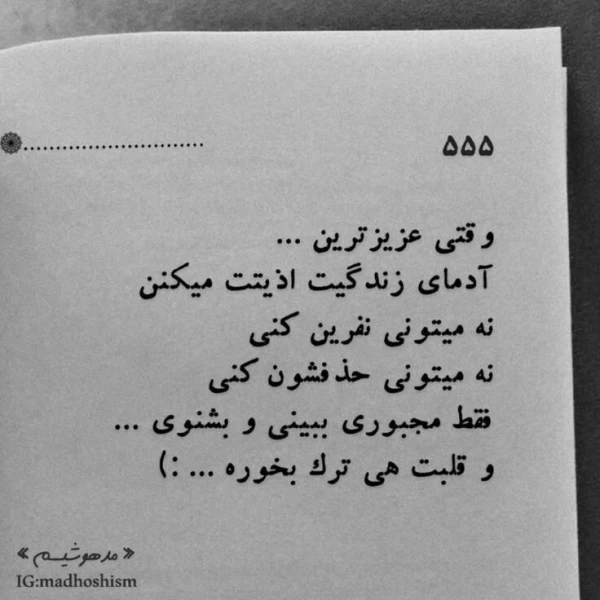 ۵۵۵
وقتی عزیزترین ...
آدمای زندگیت اذیتت میکنن
نه میتونی نفرین کنی
نه میتونی حذفشون کنی
فقط مجبوری ببینی و بشنوی ...
و قلبت هی ترك بخوره ... :)
« مدهوشیسم »
IG:madhoshism